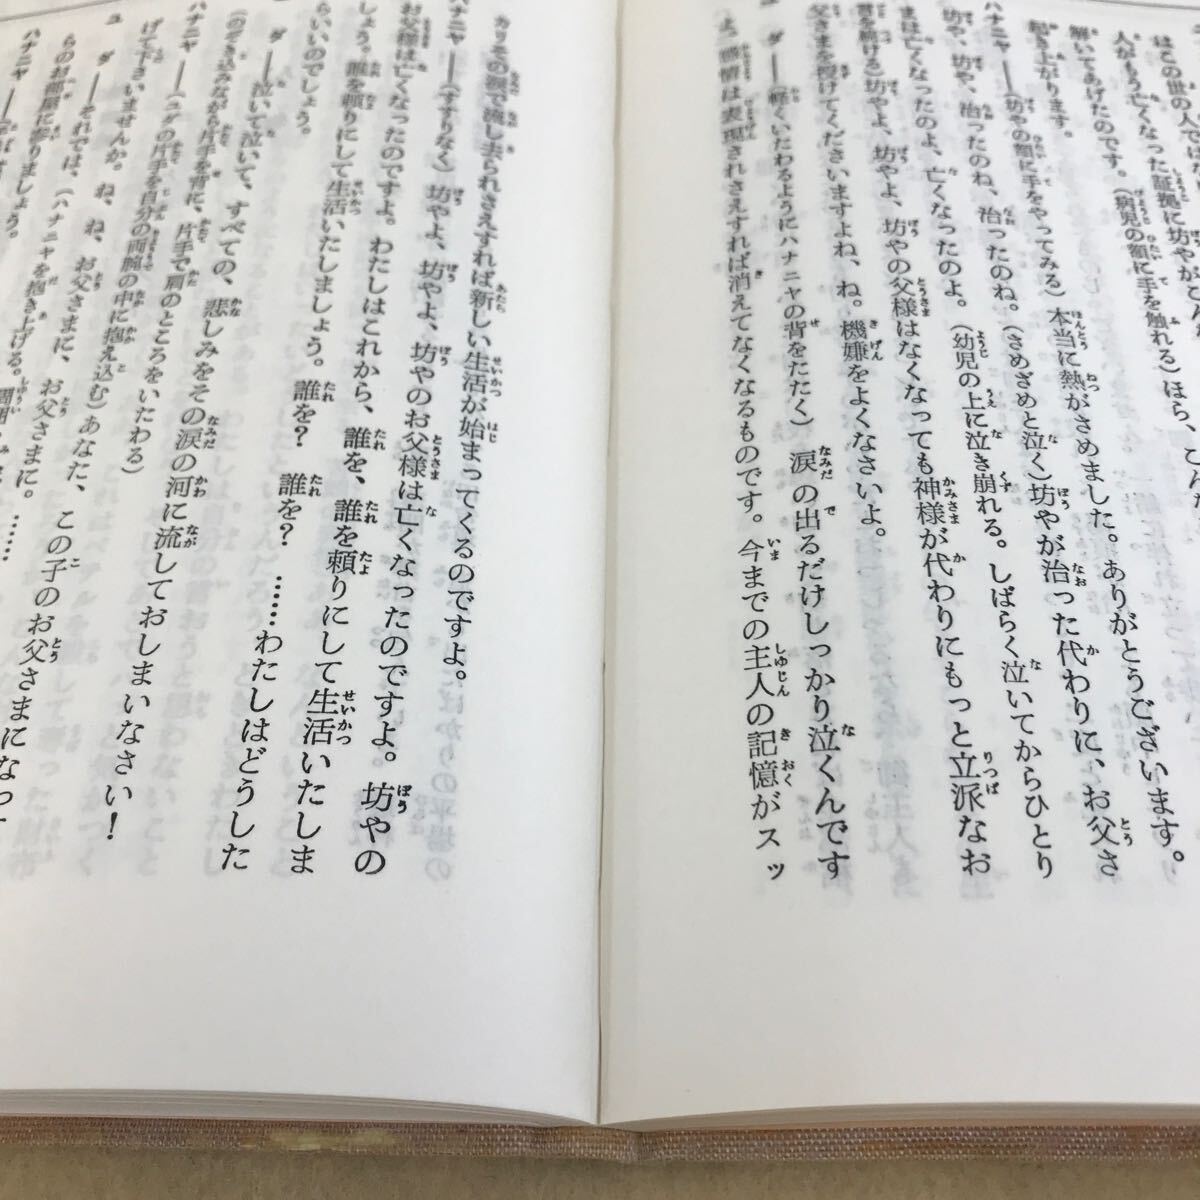 はこの世の人では
人がもう亡くなった証拠に坊やがこん
解いてあげたのです。(病児の額に手を触れる)ほら、こんな
起き上がります。
ハナニヤ——(坊やの額に手をやってみる)本当に熱がさめました。ありがとうございます。
坊や、坊や、治ったのね、治ったのね。(さめざめと泣く)坊やが治った代わりに、お父さ
まは亡くなったのよ、亡くなったのよ。(幼児の上に泣き崩れる。しばらく泣いてからひとり
言を続ける)坊やよ、坊やよ、坊やの父様はなくなっても神様が代わりにもっと立派なお
父さまを授けてくださいますよね、ね。機嫌をよくなさいよ。
ユダ——(軽くいたわるようにハナニヤの背をたたく)涙の出るだけしっかり泣くんです
よ。感情は表現されさえすれば消えてなくなるものです。今までの主人の記憶がスッ
カリその涙で流し去られさえすれば新しい生活が始まってくるのですよ。
ハナニヤ——(すすりなく)坊やよ、坊やよ、坊やのお父様は亡くなったのですよ。坊やの
お父様は亡くなったのですよ。わたしはこれから、誰を、誰を頼りにして生活いたしま
しょう。誰を頼りにして生活いたしましょう。誰を? 誰を? ……わたしはどうした
らいいのでしょう。
ユダ——泣いて泣いて、すべての、悲しみをその涙の河に流しておしまいなさい!
(のぞき込みながら片手を背に、片手で肩のところをいたわる)
ハナニヤ——(ユダの片手を自分の両腕の中に抱え込む)あなた、この子のお父さまになっ
げて下さいませんか。ね、ね、お父さまに、お父さまに。……
ユダ——それでは、(ハナニヤを抱き上げる。周囲
らのお部屋に参りましょう。
ハナニヤ——